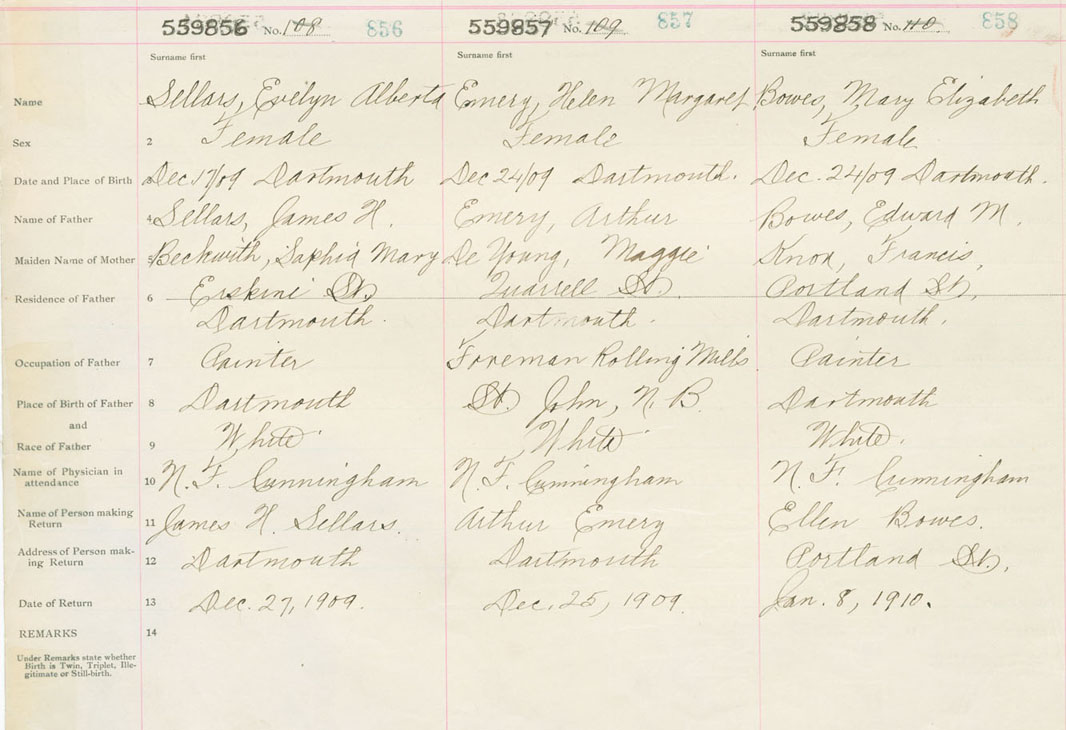 559856 No. 108 856 559857 No. 109 857 559858 No. 110. 858
Surname first Surname first Surname first
Name Sellars, Evelyn Alberta Emery, Helen Margaret Bowes, Mary Elizabeth
Sex 2 Female Female Female
Date and Place of Birth 3 Dec 17/09 Dartmouth Dec 24/09 Dartmouth. Dec. 24/09 Dartmouth.
Name of Father 4 Sellars, James H. Emery, Arthur Bowes, Edward M.
Maiden Name of Mother 5 Beckwith, Sophia Mary De Young, Maggie Knox, Francis,
Residence of Father 6 Erskine St. Quarrell St. Portland St,
Dartmouth. Dartmouth. Dartmouth.
Occupation of Father 7 Painter Foreman Rolling Mills Painter
Place of Birth of Father 8 Dartmouth St. John, N.B. Dartmouth
and
Race of Father 9 White White White.
Name of Physician in
attendance 10 N. F. Cunningham N. F. Cunningham N. F. Cunningham
Name of Person making
Return 11 James H. Sellars. Arthur Emery Ellen Bowes.
Address of Person mak-
ing Return 12 Dartmouth Dartmouth Portland St.,
Date of Return 13 Dec. 27, 1909. Dec. 25, 1909. Jan. 8, 1910.
REMARKS 14
Under Remarks state whether
Birth is Twin, Triplet, Ille-
gitimate or Still-birth.